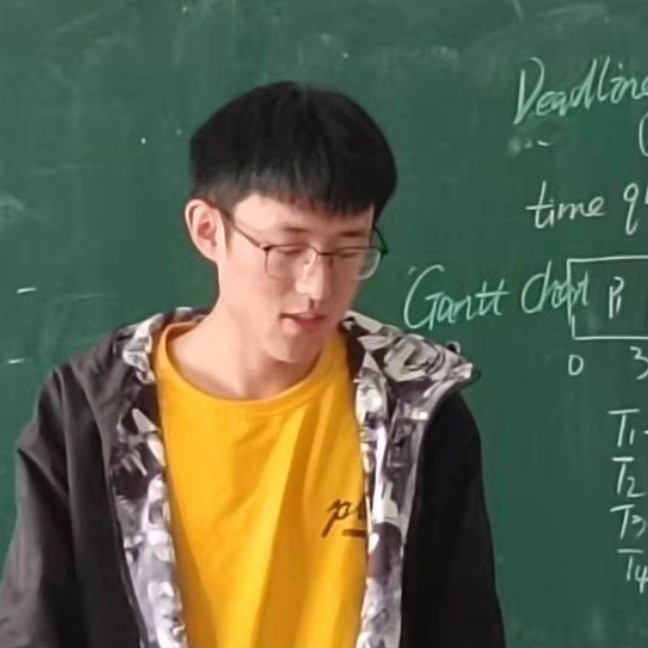 Deadline
time q
Gantt chart P1
0 3
T1
T2
T3
T4